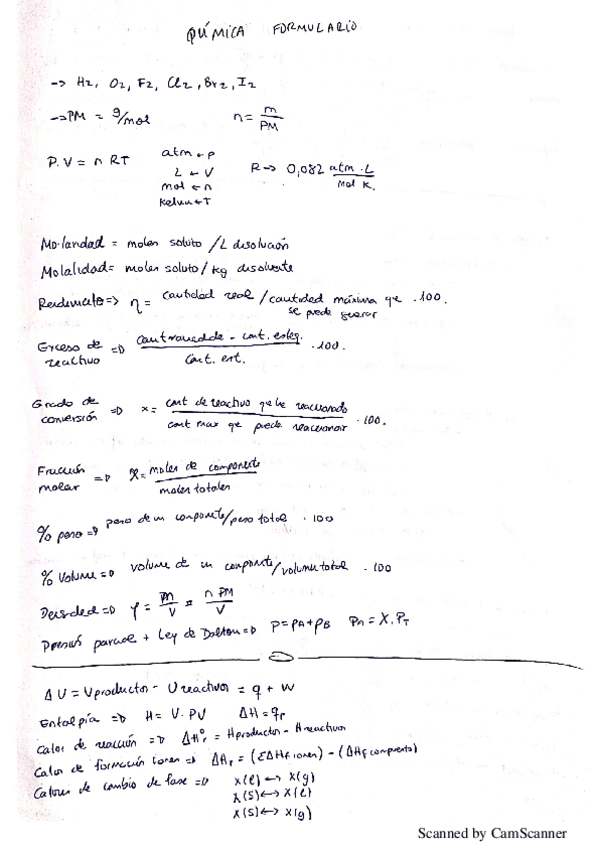 QUÍMICA FORMULARIO
-> H2, O2, F2, Cl2, Br2, I2
-> PM = g/mol n = m/PM
P.V = n RT atm ← P R -> 0,082 atm . L / mol K.
L ← V
mol ← n
Kelvin ← T
Molaridad = moles soluto / L disolución
Molalidad = moles soluto / kg disolvente
Rendimiento => η = cantidad real / cantidad máxima que se puede generar . 100.
Exceso de reactivo => - cant. esteq. / Cant. est. . 100.
Grado de conversión => x = cant de reactivo que ha reaccionado / cant max que puede reaccionar . 100.
Fracción molar => X = moles de componente / moles totales
% peso => peso de un componente / peso total . 100
% Volume => volume de un componente / volumen total . 100
Densidad => ρ = m/V = n PM/V
parcial + Ley de Dalton => P = PA + PB PA = X. PT
Δ U = Uproductos - Ureactivos = q + W
Entalpía => H = V. PV ΔH = qp
Calor de reacción => ΔH°r = Hproductos - Hreactivos
Calor de formación iones => ΔHr = (ΣΔHf iones) - (ΔHf compuesto)
de cambio de fase => X(l) <-> X(g)
X(s) <-> X(l)
X(s) <-> X(g)
Scanned by CamScanner